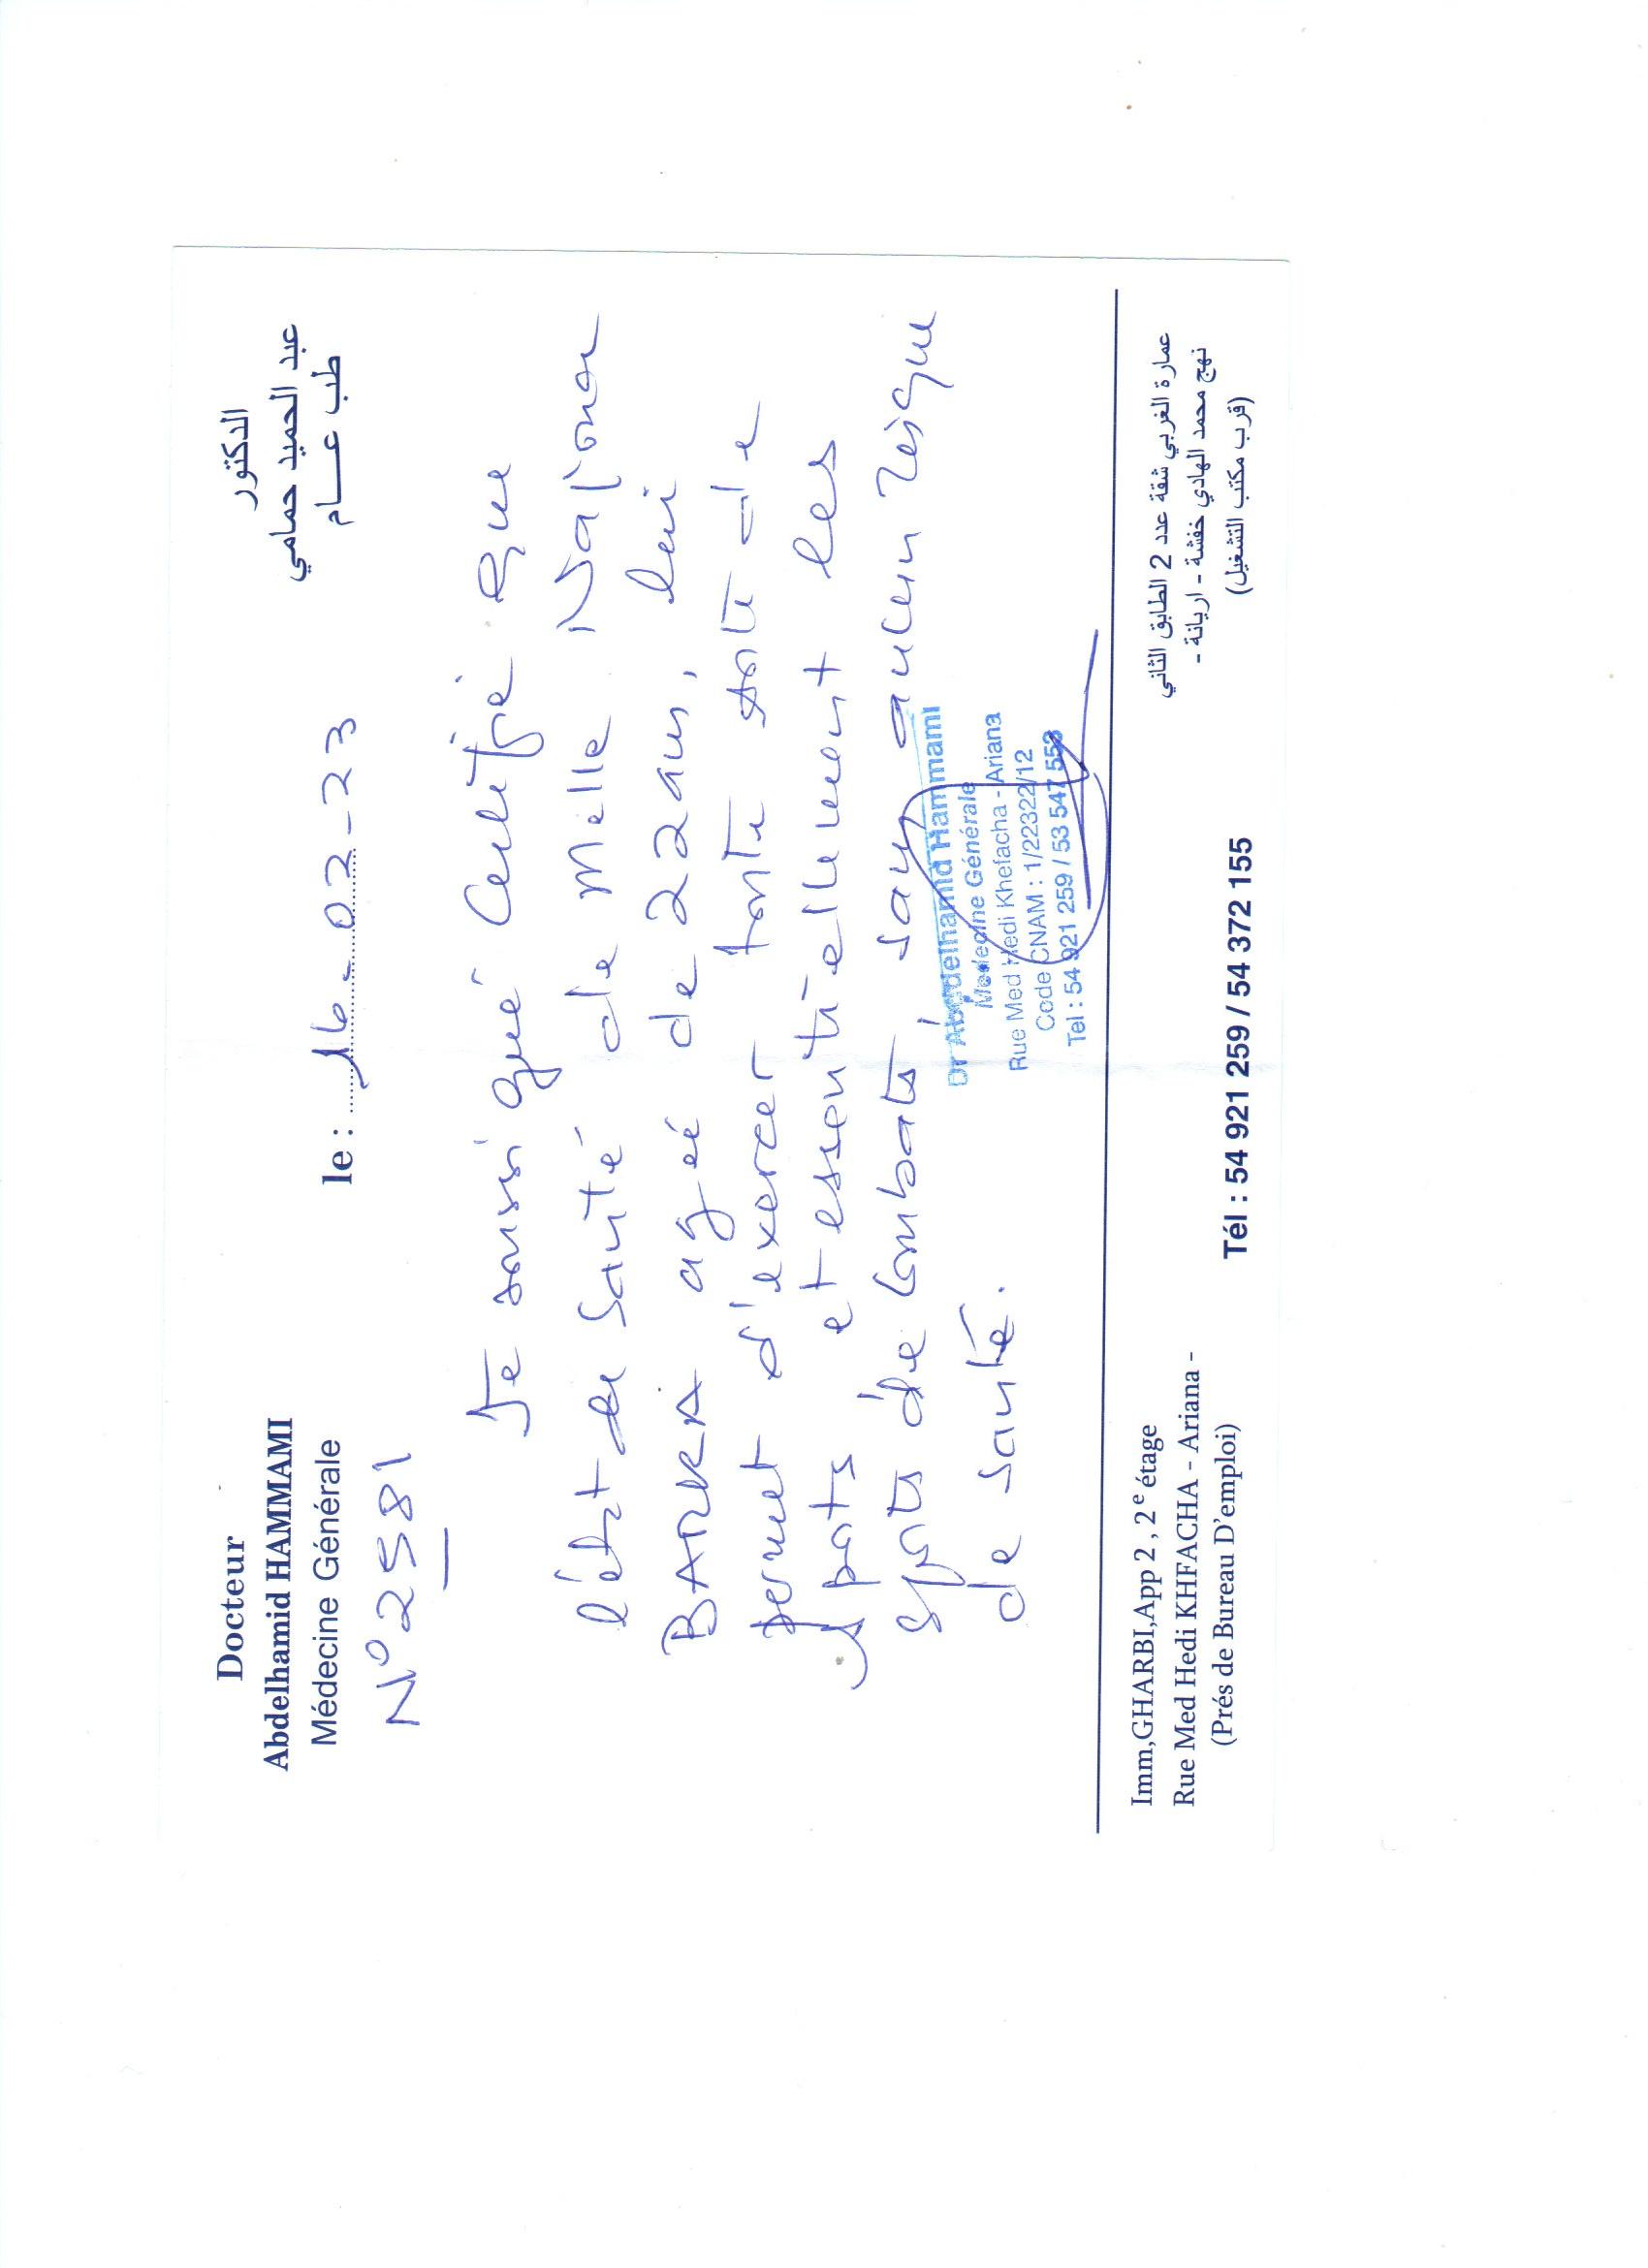 Docteur
Abdelhamid HAMMAMI
Médecine Générale
الدكتور
عبد الحميد حمامي
طب عـــام
N° 2581
le : 16-02-23
Je soussigné Certifie que
l'état de Santé de Melle
BARKA agée de 22 ans, lui
permet d'exercer toute sorte de
sports et essentiellement les
sports de Combats, sans aucun risque
de santé.
Dr Abdelhamid Hammami
Medecine Générale
Rue Med Hedi Khefacha - Ariana
Code CNAM : 1/22322/12
Tel : 54 921 259 / 53 547 553
Imm,GHARBI,App 2 , 2e étage
Rue Med Hedi KHFACHA - Ariana -
(Prés de Bureau D'emploi)
Tél : 54 921 259 / 54 372 155
عمارة الغربي شقة عدد 2 الطابق الثاني
نهج محمد الهادي خفشة - اريانة -
(قرب مكتب التشغيل)